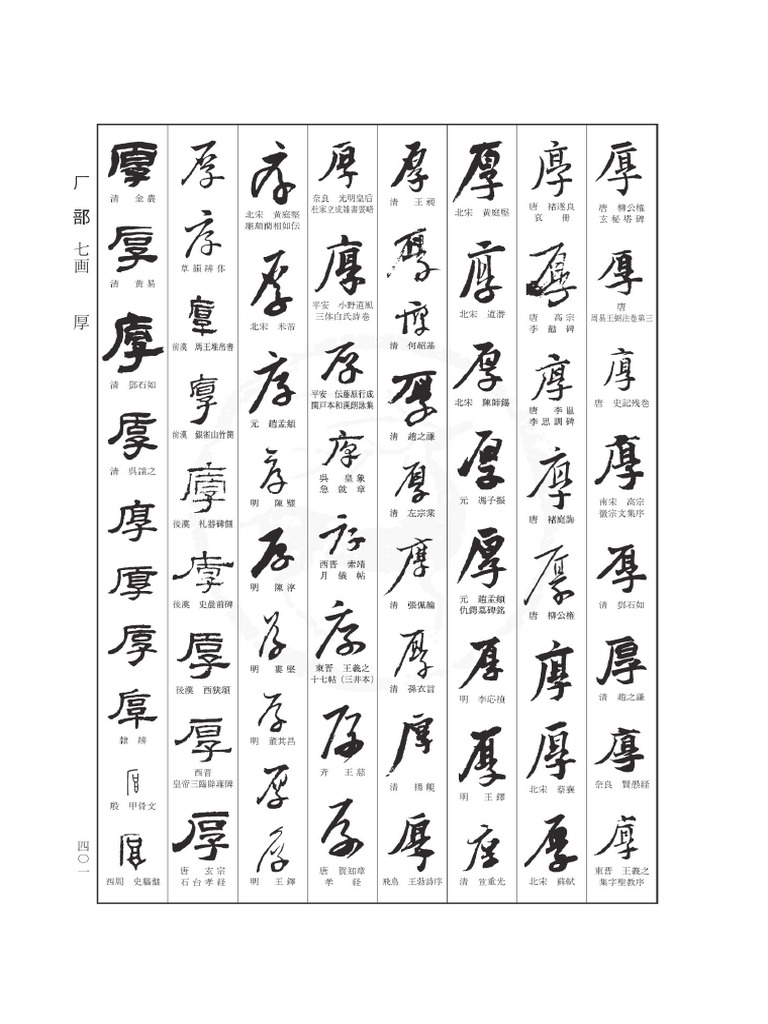 厂
部
七画
厚
四〇一
厚
唐 柳公権
玄秘塔碑
厚
唐
周易王弼注巻第三
厚
唐 史記残巻
厚
南宋 高宗
徽宗文集序
厚
清 鄧石如
厚
清 趙之謙
厚
奈良 賢愚経
厚
東晋 王羲之
集字聖教序
厚
唐 褚遂良
哀冊
厚
唐 高宗
李勣碑
厚
唐 李邕
李思訓碑
厚
唐 褚庭誨
厚
唐 柳公権
厚
厚
北宋 蔡襄
厚
北宋 蘇軾
厚
北宋 黄庭堅
厚
北宋 道潜
厚
北宋 陳師錫
厚
元 馮子振
厚
元 趙孟頫
仇鍔墓碑銘
厚
明 李応禎
厚
明 王鐸
厚
清 笪重光
厚
清 王澍
厚
厚
清 何紹基
厚
清 趙之謙
厚
清 左宗棠
厚
清 張佩綸
厚
清 孫衣言
厚
清 楊峴
厚
飛鳥 王勃詩序
厚
奈良 光明皇后
杜家立成雑書要略
厚
平安 小野道風
三体白氏詩巻
厚
平安 伝藤原行成
関戸本和漢朗詠集
厚
呉 皇象
急就章
厚
西晋 索靖
月儀帖
厚
東晋 王羲之
十七帖(三井本)
厚
斉 王慈
厚
唐 賀知章
孝経
厚
北宋 黄庭堅
廉頗藺相如伝
厚
北宋 米芾
厚
元 趙孟頫
厚
明 陳璧
厚
明 陳淳
厚
明 婁堅
厚
明 董其昌
厚
厚
明 王鐸
厚
厚
草韻辨体
厚
前漢 馬王堆帛書
厚
前漢 銀雀山竹簡
厚
後漢 礼器碑側
厚
後漢 史晨前碑
厚
後漢 西狭頌
厚
西晋
皇帝三臨辟雍碑
厚
唐 玄宗
石台孝経
厚
清 金農
厚
清 黄易
厚
清 鄧石如
厚
清 呉譲之
厚
厚
厚
厚
隷辨
厚
殷 甲骨文
厚
西周 史牆盤